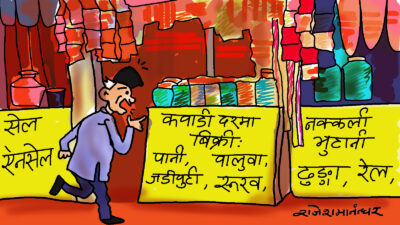 सेल
ऐनसेल
कवाडी दरमा
बिक्री:
पानी, पालुवा,
जडीपुट्टी, रूरव,
नक्कली
भुटानी
ढुङ्गा, रेल,
राजेशमानन्धर